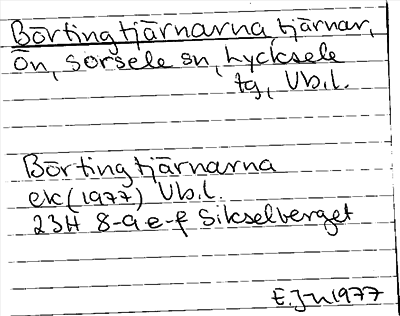 Börtingtjärnarna, tjärnar,
Ön, Sorsele sn, Lycksele
tg, Vb.l.
Börtingtjärnarna
ek (1977) Vb.l.
23H 8-9 e-f Sikselberget
E.Jn 1977